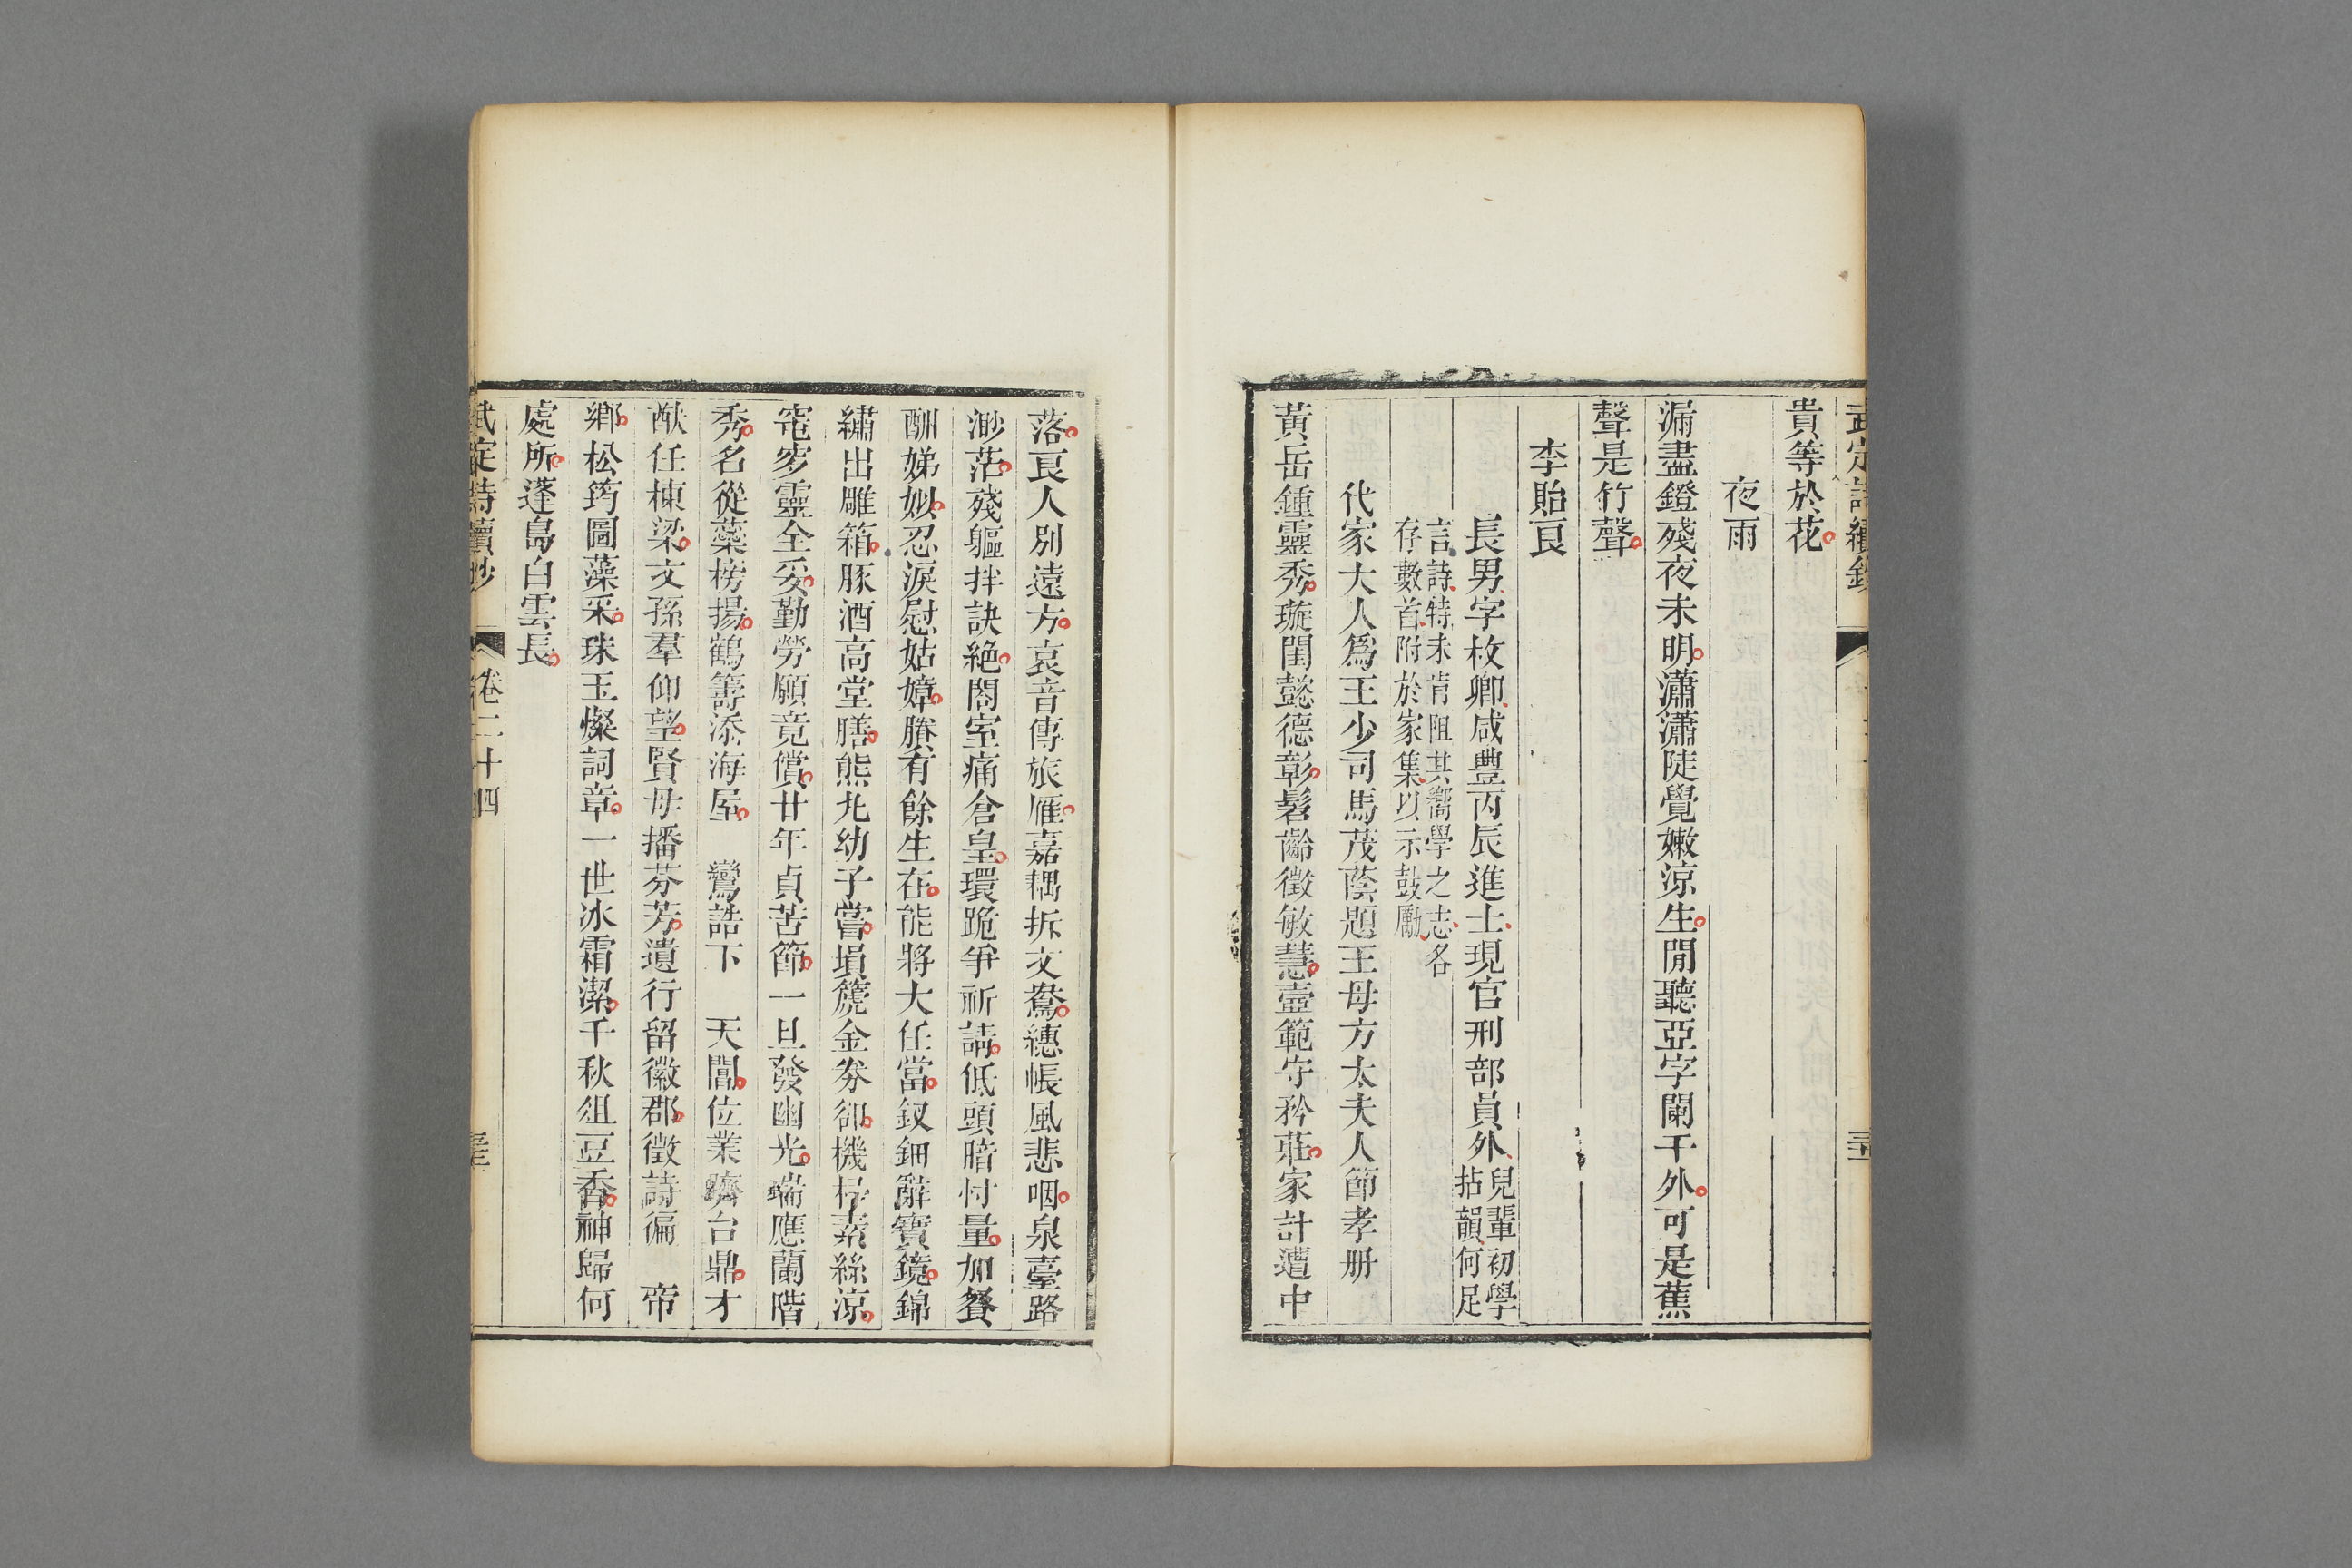 武定詩續鈔
貴等於花
夜雨
漏盡鐙殘夜未明瀟瀟陡覺嫩涼生閒聽亞字闌干外可是蕉
聲是竹聲
李貽良
長男字枚卿咸豐丙辰進士現官刑部員外兒輩初學拈韻何足
言詩特未肯阻其嚮學之志名
存數首附於家集以示鼓勵
代家大人爲王少司馬茂蔭題王母方太夫人節孝册
黃岳鍾靈秀璇閨懿德彰髫齡徵敏慧壼範守矜莊家計遭中
落良人別遠方哀音傳旅雁嘉耦拆文鴦繐帳風悲咽泉臺路
渺茫殘軀拌訣絕閤室痛倉皇環跪爭祈請低頭暗忖量加餐
酬娣姒忍淚慰姑嫜賸有餘生在能將大任當釵鈿辭寶鏡錦
繡出雕箱豚酒高堂膳熊丸幼子嘗塤箎金券卻機杼素絲涼
窀穸靈全妥勤勞願竟償廿年貞苦節一旦發幽光瑞應蘭階
秀名從蘂榜揚鶴籌添海屋 鸞誥下 天閶位業躋台鼎才
猷任棟梁文孫羣仰望賢母播芬芳遺行留徽郡徵詩徧 帝
鄉松筠圖藻采珠玉燦詞章一世冰霜潔千秋俎豆香神歸何
處所蓬島白雲長
武定詩續鈔 卷二十四